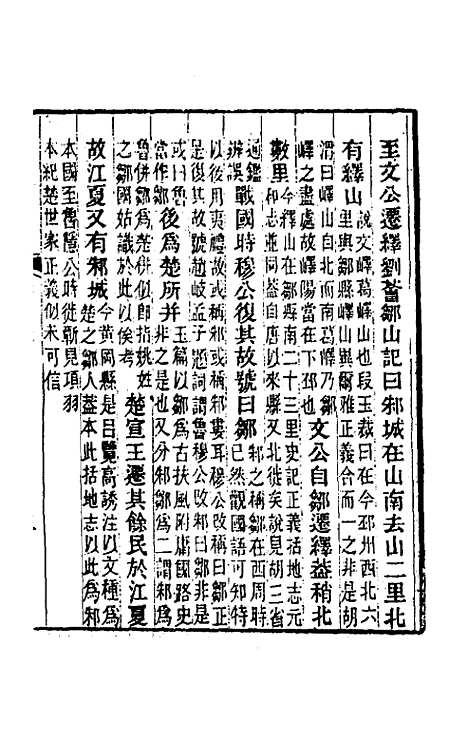 至文公遷繹劉薈鄒山記曰邾城在山南去山二里北
有繹山
說文嶧葛嶧山也段玉裁曰在今邳州西北六
里與鄒縣嶧山與爾雅正義合而一之非是胡
渭曰嶧山自北而南葛嶧乃鄒
嶧之盡處故嶧陽當在下邳也
文公自鄒遷繹益稍北
數里
今繹山在鄒縣南二十三里史記正義括地志元
和志並同葢自唐以來縣又北徙矣說見胡三省
通鑑
辨誤
戰國時穆公復其故號曰鄒
邾之稱鄒在西周時
已然觀國語可知特
以後用夷禮改稱邾或稱邾婁耳穆公改稱曰鄒正
是復其故號趙岐孟子題詞謂魯穆公改邾曰鄒非是
或曰魯
當作鄒
後爲楚所并
玉篇以鄒爲古扶風附庸國路史
非之是也又分邾鄒爲二謂邾
魯併鄒爲楚併似卽指桃姓
之鄒國姑識於此以俟考
楚宣王遷其餘民於江夏
故江夏又有邾城
今黃岡縣是呂覽高誘注以文種爲
楚之鄒人葢本此括地志以此爲邾
本國至魯隱公時徙蘄見項羽
本紀楚世家正義似未可信